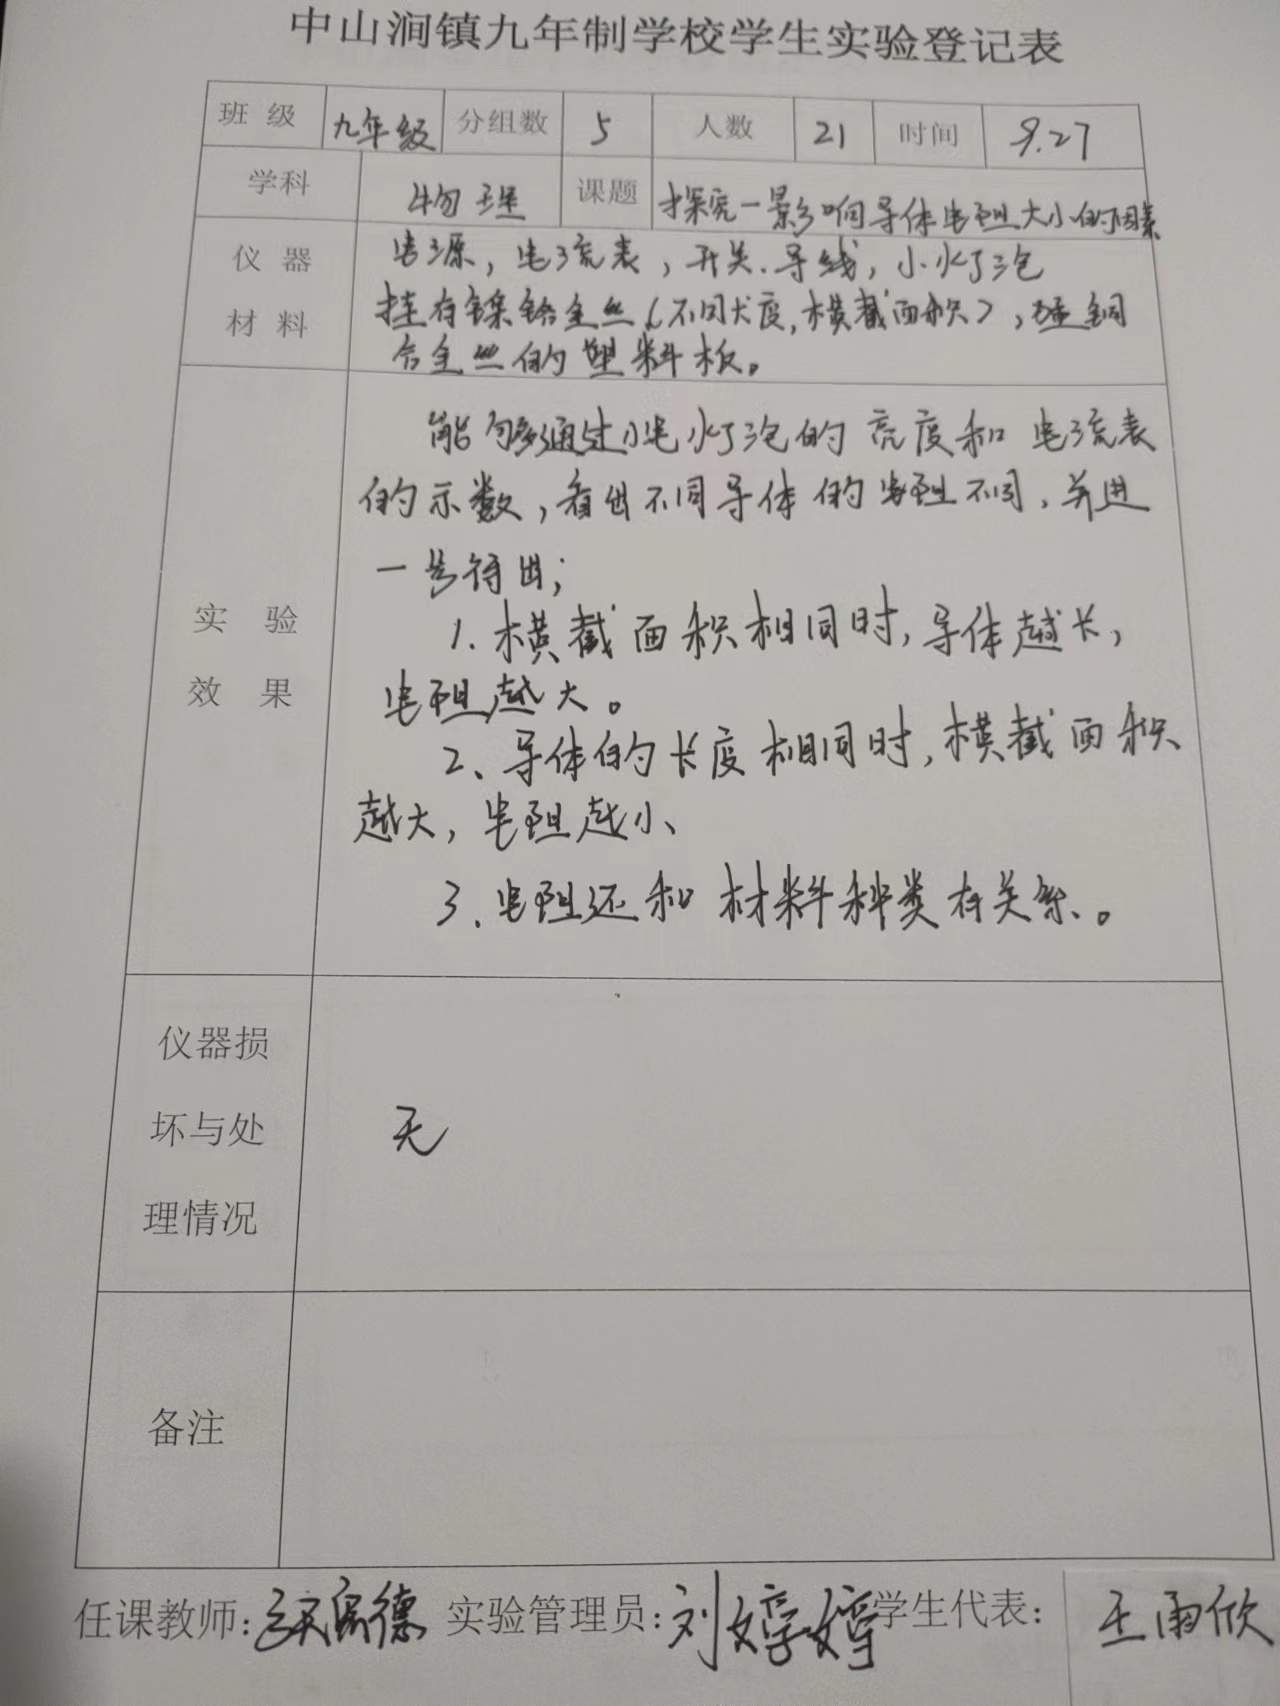 中山涧镇九年制学校学生实验登记表
班 级 九年级 分组数 5 人数 21 时间 9.27
学科 物理 课题 探究一影响导体电阻大小的因素
仪 器 电源，电流表，开关、导线，小灯泡
材 料 挂有镍铬合金丝（不同长度，横截面积），锰铜
合金丝的塑料板。
能够通过小电灯泡的亮度和电流表
的示数，看出不同导体的电阻不同，并进
一步得出；
实 验 1. 横截面积相同时，导体越长，
效 果 电阻越大。
2、导体的长度相同时，横截面积
越大，电阻越小、
3、电阻还和材料种类有关系。
仪器损
坏与处 无
理情况
备注
任课教师： 实验管理员：刘婷婷 学生代表：王雨欣